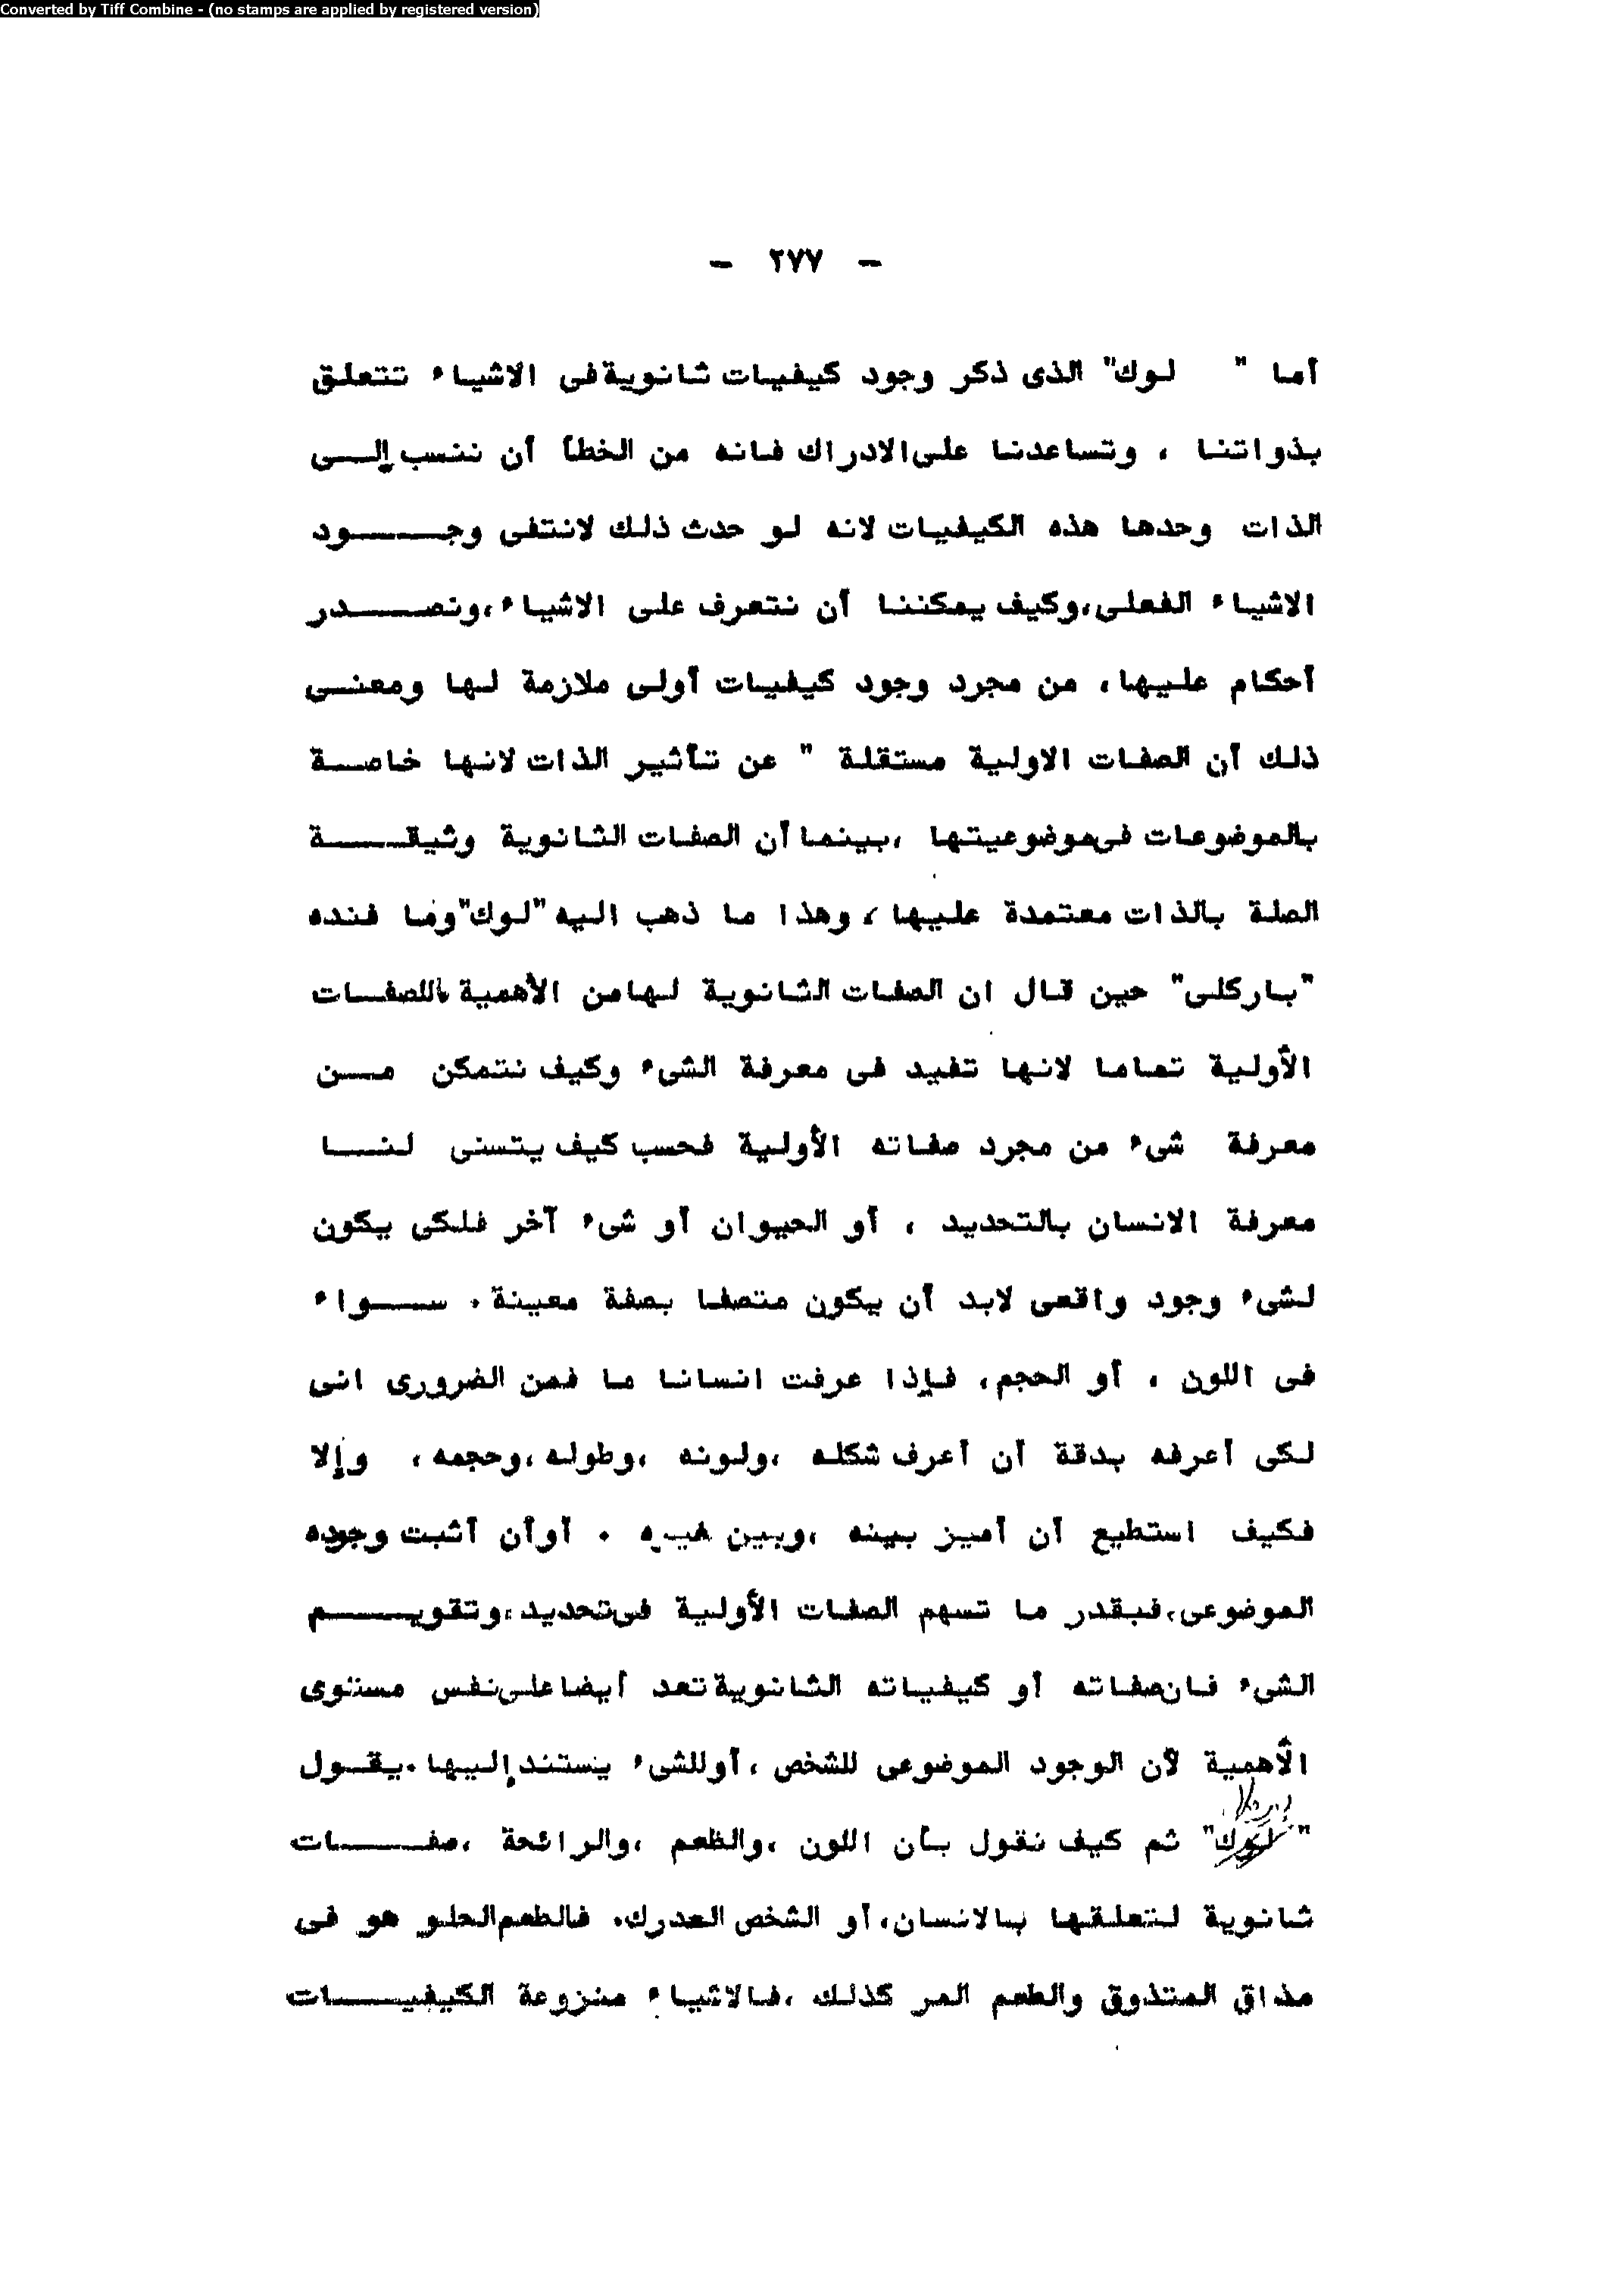 Converted by Tiff Combine - (no stamps are applied by registered version)
- ٢٧٧ -
أما " لوك" الذى ذكر وجود كيفيات ثانوية فى الاشياء تتعلق
بذواتنا ، وتساعدنا على الادراك فانه من الخطأ أن ننسب إلى
الذات وحدها هذه الكيفيات لانه لو حدث ذلك لانتفى وجود
الاشياء الفعلى، وكيف يمكننا أن نتعرف على الاشياء، ونصدر
أحكام عليها، من مجرد وجود كيفيات أولى ملازمة لها ومعنى
ذلك أن الصفات الاولية مستقلة " عن تأثير الذات لانها خاصة
بالموضوعات فى موضوعيتها ، بينما أن الصفات الثانوية وثيقة
الصلة بالذات معتمدة عليها ، وهذا ما ذهب اليه "لوك" وما فنده
"باركلى" حين قال ان الصفات الثانوية لها من الأهمية باللصفات
الأولية تماما لانها تفيد فى معرفة الشىء وكيف نتمكن من
معرفة شىء من مجرد صفاته الأولية فحسب كيف يتسنى لنا
معرفة الانسان بالتحديد ، أو الحيوان أو شىء آخر فلكى يكون
لشىء وجود واقعى لابد أن يكون متصفا بصفة معينة . سواء
فى اللون ، أو الحجم، فإذا عرفت انسانا ما فمن الضرورى انى
لكى أعرفه بدقة أن أعرف شكله ، ولونه ، وطوله ، وحجمه ، وإلا
فكيف استطيع أن أميز بينه ، وبين غيره . أو أن أثبت وجوده
الموضوعى، فبقدر ما تسهم الصفات الأولية فى تحديد، وتقويم
الشىء فان صفاته أو كيفياته الثانوية تعد أيضا على نفس مستوى
الأهمية لأن الوجود الموضوعى للشخص ، أو للشىء يستند إليها . يقول
"لوك" ثم كيف نقول بأن اللون ، والطعم ، والرائحة ، صفات
ثانوية لتعلقها بالانسان، أو الشخص المدرك. فالطعم الحلو هو فى
مذاق المتذوق والطعم المر كذلك ، فالاشياء منزوعة الكيفيات